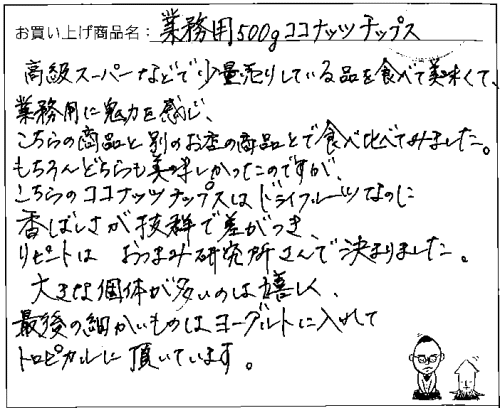 お買い上げ商品名：業務用500gココナッツチップス
高級スーパーなどで少量売りしている品を食べて美味くて、
業務用に魅力を感じ、
こちらの商品と別のお店の商品とで食べ比べてみました。
もちろんどちらも美味しかったのですが、
こちらのココナッツチップスはドライフルーツなのに
香ばしさが抜群で差がつき、
リピートは おつまみ研究所さんで決まりました。
大きな個体が多いのは嬉しく、
最後の細かいものはヨーグルトに入れて
トロピカルに頂いています。